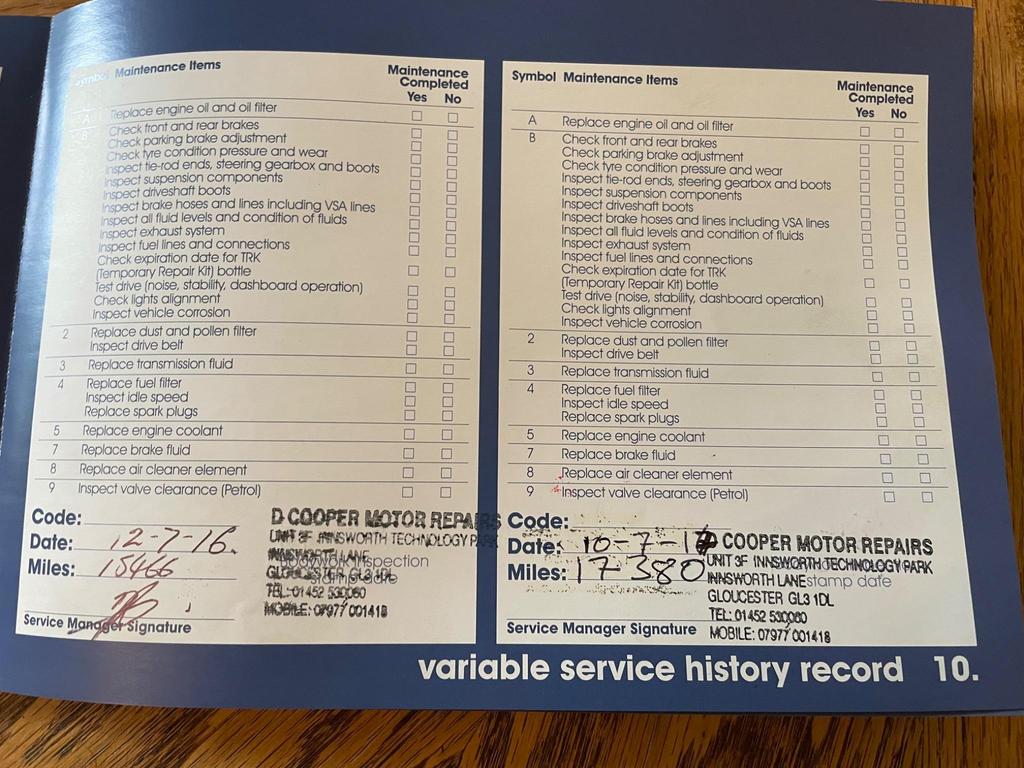 Symbol Maintenance Items
Maintenance
Completed
Yes No
A Replace engine oil and oil filter
B Check front and rear brakes
Check parking brake adjustment
Check tyre condition pressure and wear
Inspect tie-rod ends, steering gearbox and boots
Inspect suspension components
Inspect driveshaft boots
Inspect brake hoses and lines including VSA lines
Inspect all fluid levels and condition of fluids
Inspect exhaust system
Inspect fuel lines and connections
Check expiration date for TRK
(Temporary Repair Kit) bottle
Test drive (noise, stability, dashboard operation)
Check lights alignment
Inspect vehicle corrosion
2 Replace dust and pollen filter
Inspect drive belt
3 Replace transmission fluid
4 Replace fuel filter
Inspect idle speed
Replace spark plugs
5 Replace engine coolant
7 Replace brake fluid
8 Replace air cleaner element
9 Inspect valve clearance (Petrol)
Code:
Date: 12-7-16.
Miles: 15466
Service Manager Signature
D COOPER MOTOR REPAIRS
UNIT 3F INNSWORTH TECHNOLOGY PARK
INNSWORTH LANE
GLOUCESTER GL3 1DL
TEL: 01452 530060
MOBILE: 07977 001418
bodywork inspection
stamp date
Symbol Maintenance Items
Maintenance
Completed
Yes No
A Replace engine oil and oil filter
B Check front and rear brakes
Check parking brake adjustment
Check tyre condition pressure and wear
Inspect tie-rod ends, steering gearbox and boots
Inspect suspension components
Inspect driveshaft boots
Inspect brake hoses and lines including VSA lines
Inspect all fluid levels and condition of fluids
Inspect exhaust system
Inspect fuel lines and connections
Check expiration date for TRK
(Temporary Repair Kit) bottle
Test drive (noise, stability, dashboard operation)
Check lights alignment
Inspect vehicle corrosion
2 Replace dust and pollen filter
Inspect drive belt
3 Replace transmission fluid
4 Replace fuel filter
Inspect idle speed
Replace spark plugs
5 Replace engine coolant
7 Replace brake fluid
8 Replace air cleaner element
9 Inspect valve clearance (Petrol)
Code:
Date: 10-7-17
Miles: 17380
Service Manager Signature
D COOPER MOTOR REPAIRS
UNIT 3F INNSWORTH TECHNOLOGY PARK
INNSWORTH LANE
GLOUCESTER GL3 1DL
TEL: 01452 530060
MOBILE: 07977 001418
stamp date
variable service history record 10.